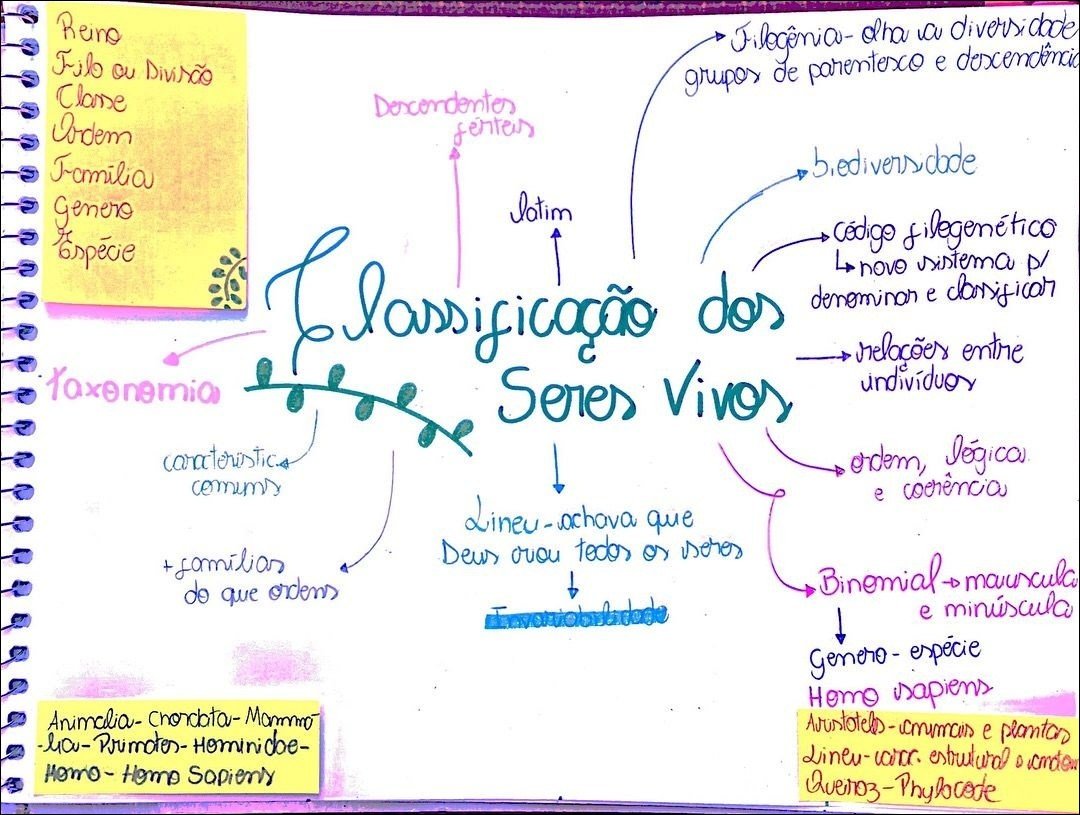 Reino
Filo ou Divisão
Classe
Ordem
Família
Genero
Espécie
Descendentes
férteis
latim
Filogênia - olha va diversidade
grupos de parentesco e descendência
biodiversidade
código filogenético
novo sistema p/
denominar e classificar
Classificação dos
Seres Vivos
relações entre
indivíduos
taxonomia
característic.
comuns
ordem, lógica
e coerência
+ famílias
do que ordens
Lineu - achava que
Deus criou todos os seres
Invariabilidade
Binomial → maiuscula
e minúscula
Genero - espécie
Homo sapiens
Animalia - Chordata - Mamma
-lia - Primates - Hominidae -
Homo - Homo Sapiens
Aristoteles - animais e plantas
Lineu - carac. estrutural
Queiroz - Phylocode